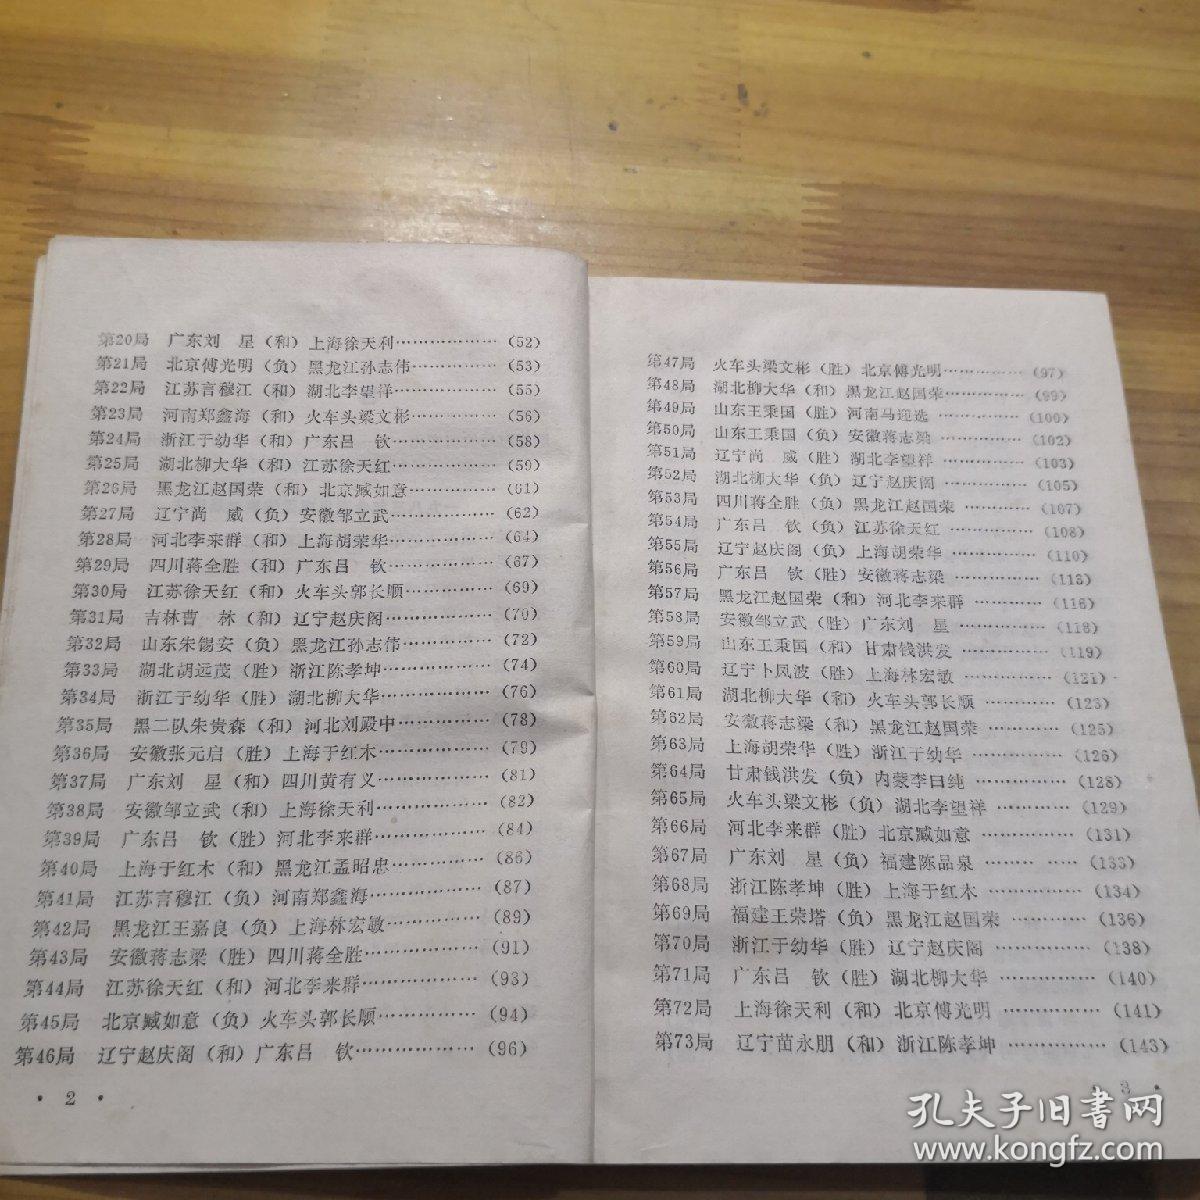 第20局 广东刘 星（和）上海徐天利………………（52）
第21局 北京傅光明（负）黑龙江孙志伟……………（53）
第22局 江苏言穆江（和）湖北李望祥………………（55）
第23局 河南郑鑫海（和）火车头梁文彬……………（56）
第24局 浙江于幼华（和）广东吕 钦………………（58）
第25局 湖北柳大华（和）江苏徐天红………………（59）
第26局 黑龙江赵国荣（和）北京臧如意……………（61）
第27局 辽宁尚 威（负）安徽邹立武………………（62）
第28局 河北李来群（和）上海胡荣华………………（64）
第29局 四川蒋全胜（和）广东吕 钦………………（67）
第30局 江苏徐天红（和）火车头郭长顺……………（69）
第31局 吉林曹 霖（和）辽宁赵庆阁………………（70）
第32局 山东朱锡安（负）黑龙江孙志伟……………（72）
第33局 湖北胡远茂（胜）浙江陈孝坤………………（74）
第34局 浙江于幼华（胜）湖北柳大华………………（76）
第35局 黑二队朱贵森（和）河北刘殿中……………（78）
第36局 安徽张元启（胜）上海于红木………………（79）
第37局 广东刘 星（和）四川黄有义………………（81）
第38局 安徽邹立武（和）上海徐天利………………（82）
第39局 广东吕 钦（胜）河北李来群………………（84）
第40局 上海于红木（和）黑龙江孟昭忠……………（86）
第41局 江苏言穆江（负）河南郑鑫海………………（87）
第42局 黑龙江王嘉良（负）上海林宏敏……………（89）
第43局 安徽蒋志梁（胜）四川蒋全胜………………（91）
第44局 江苏徐天红（和）河北李来群………………（93）
第45局 北京臧如意（负）火车头郭长顺……………（94）
第46局 辽宁赵庆阁（和）广东吕 钦………………（96）
· 2 ·
第47局 火车头梁文彬（胜）北京傅光明……………（97）
第48局 湖北柳大华（和）黑龙江赵国荣……………（99）
第49局 山东王秉国（胜）河南马迎选 ……………（100）
第50局 山东王秉国（负）安徽蒋志梁 ……………（102）
第51局 辽宁尚 威（胜）湖北李望祥 ……………（103）
第52局 湖北柳大华（负）辽宁赵庆阁 ……………（105）
第53局 四川蒋全胜（负）黑龙江赵国荣 …………（107）
第54局 广东吕 钦（负）江苏徐天红 ……………（108）
第55局 辽宁赵庆阁（负）上海胡荣华 ……………（110）
第56局 广东吕 钦（胜）安徽蒋志梁 ……………（113）
第57局 黑龙江赵国荣（和）河北李来群 …………（116）
第58局 安徽邹立武（胜）广东刘 星 ……………（118）
第59局 山东王秉国（和）甘肃钱洪发 ……………（119）
第60局 辽宁卜凤波（胜）上海林宏敏 ……………（121）
第61局 湖北柳大华（和）火车头郭长顺 …………（123）
第62局 安徽蒋志梁（和）黑龙江赵国荣 …………（125）
第63局 上海胡荣华（胜）浙江于幼华 ……………（126）
第64局 甘肃钱洪发（负）内蒙李曰纯 ……………（128）
第65局 火车头梁文彬（负）湖北李望祥 …………（129）
第66局 河北李来群（胜）北京臧如意 ……………（131）
第67局 广东刘 星（负）福建陈品泉 ……………（133）
第68局 浙江陈孝坤（胜）上海于红木 ……………（134）
第69局 福建王荣塔（负）黑龙江赵国荣 …………（136）
第70局 浙江于幼华（胜）辽宁赵庆阁 ……………（138）
第71局 广东吕 钦（胜）湖北柳大华 ……………（140）
第72局 上海徐天利（和）北京傅光明 ……………（141）
第73局 辽宁苗永朋（和）浙江陈孝坤 ……………（143）
3 ·
孔夫子旧书网
www.kongfz.com